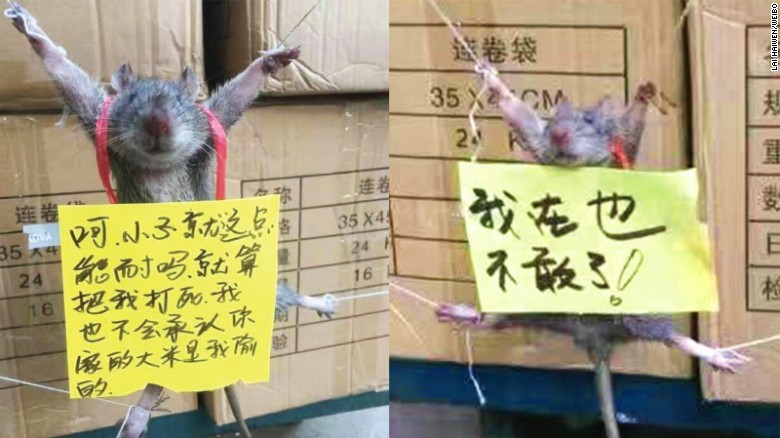 呵.小子就这点
能耐吗.就算
把我打死.我
也不会承认你
家的大米是我偷
的.
连卷袋
35X4
24
16
名称
连卷
35X45
24
16
我在也
不敢了!
连卷袋
35X45CM
24 K
LAI HAIWEN/WEIBO